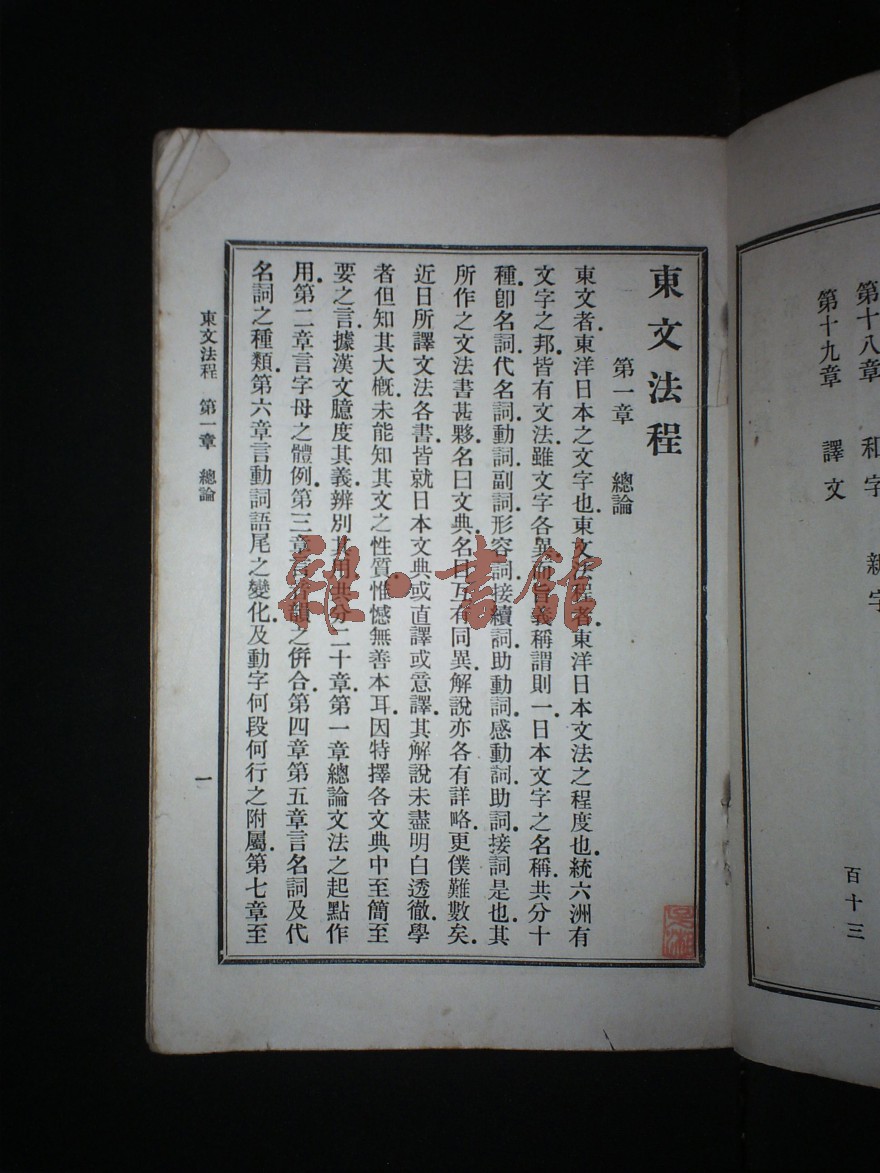 第十八章 和字 親字
第十九章 譯文 百十三
東文法程
第一章 總論
東文者、東洋日本之文字也、東文法程者、東洋日本文法之程度也、統六洲有
文字之邦、皆有文法、雖文字各異、而旨義稱謂則一、日本文字之名稱、共分十
種、卽名詞、代名詞、動詞、副詞、形容詞、接續詞、助動詞、感動詞、助詞、接詞是也、其
所作之文法書甚夥、名曰文典、名目互有同異、解說亦各有詳略、更僕難數矣、
近日所譯文法各書、皆就日本文典或直譯或意譯、其解說未盡明白透徹、學
者但知其大槪、未能知其文之性質、惟憾無善本耳、因特擇各文典中至簡至
要之言、據漢文臆度其義、辨別其用、共分二十章、第一章總論文法之起點作
用、第二章言字母之體例、第三章言音韻之倂合、第四章第五章言名詞及代
名詞之種類、第六章言動詞語尾之變化、及動字何段何行之附屬、第七章至
東文法程 第一章 總論 一
雜·書館